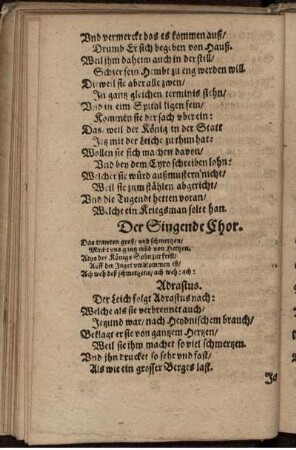 Vnd vermerckt das es kommen auff/
Drumb Er sich begeben von Hauß.
Weil ihm daheim auch in der still/
Schier sein Hembt zu eng werden will.
Die weil sie aber alle zwen/
In gantz gleichen terminis stehn/
Vnd in eim Spital ligen sein/
Kommen sie der sach vberein:
Das, weil der König in der Statt
Jetz mit der Leiche zu thun hat:
Wollen sie sich machen davon/
Vnd bey dem Cyro schreiben lohn:
Welcher sie würd außmustern nicht/
Weil sie zum stählen abgericht/
Vnd die Tugendt hetten voran/
Welche ein Kriegsman solte han.
Der Singende Chor.
Das trawren groß/ vnd schmertzen/
Macht vns gantz müd von Hertzen,
Atys der Königs Sohn zur frist/
Auff der Jaget vmbkommen ist/
Ach weh deß schmertzens/ ach weh: ach:
Adrastus.
Der Leich folgt Adrastus nach:
Welche als sie verbrennet auch/
Jetzund war/ nach Heydnischem brauch/
Beklagt er sie von gantzem Hertzen/
Weil sie ihm machet so viel schmertzen.
Vnd ihn drucket so sehr vnd fast/
Als wie ein grosser Berges last.